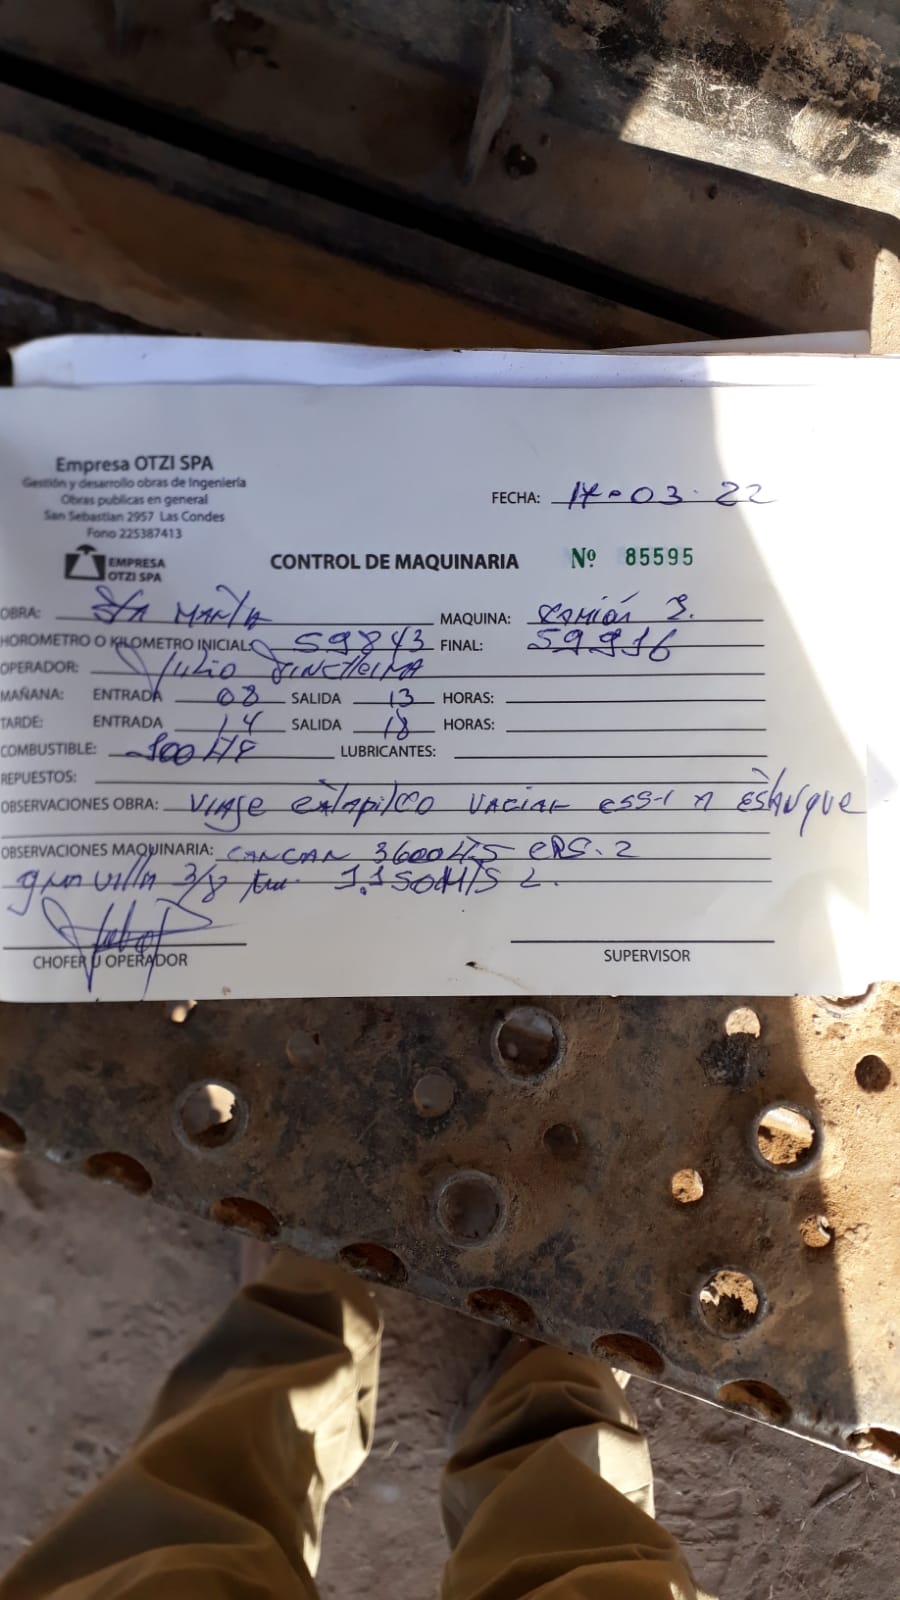 Empresa OTZI SPA
Gestión y desarrollo obras de Ingeniería
Obras publicas en general
San Sebastian 2957 Las Condes
Fono 225387413
FECHA: 17-03-22
EMPRESA
OTZI SPA
CONTROL DE MAQUINARIA Nº 85595
OBRA: Sta MARIA MAQUINA: Camión
HOROMETRO O KILOMETRO INICIAL: 59843 FINAL: 59916
OPERADOR: Julio
MAÑANA: ENTRADA 08 SALIDA 13 HORAS:
TARDE: ENTRADA 14 SALIDA 18 HORAS:
COMBUSTIBLE: 100 LUBRICANTES:
REPUESTOS:
OBSERVACIONES OBRA: VIAJE VACIAR A EStAnque
OBSERVACIONES MAQUINARIA: CANCAN
gravilla 3/8
CHOFER U OPERADOR SUPERVISOR